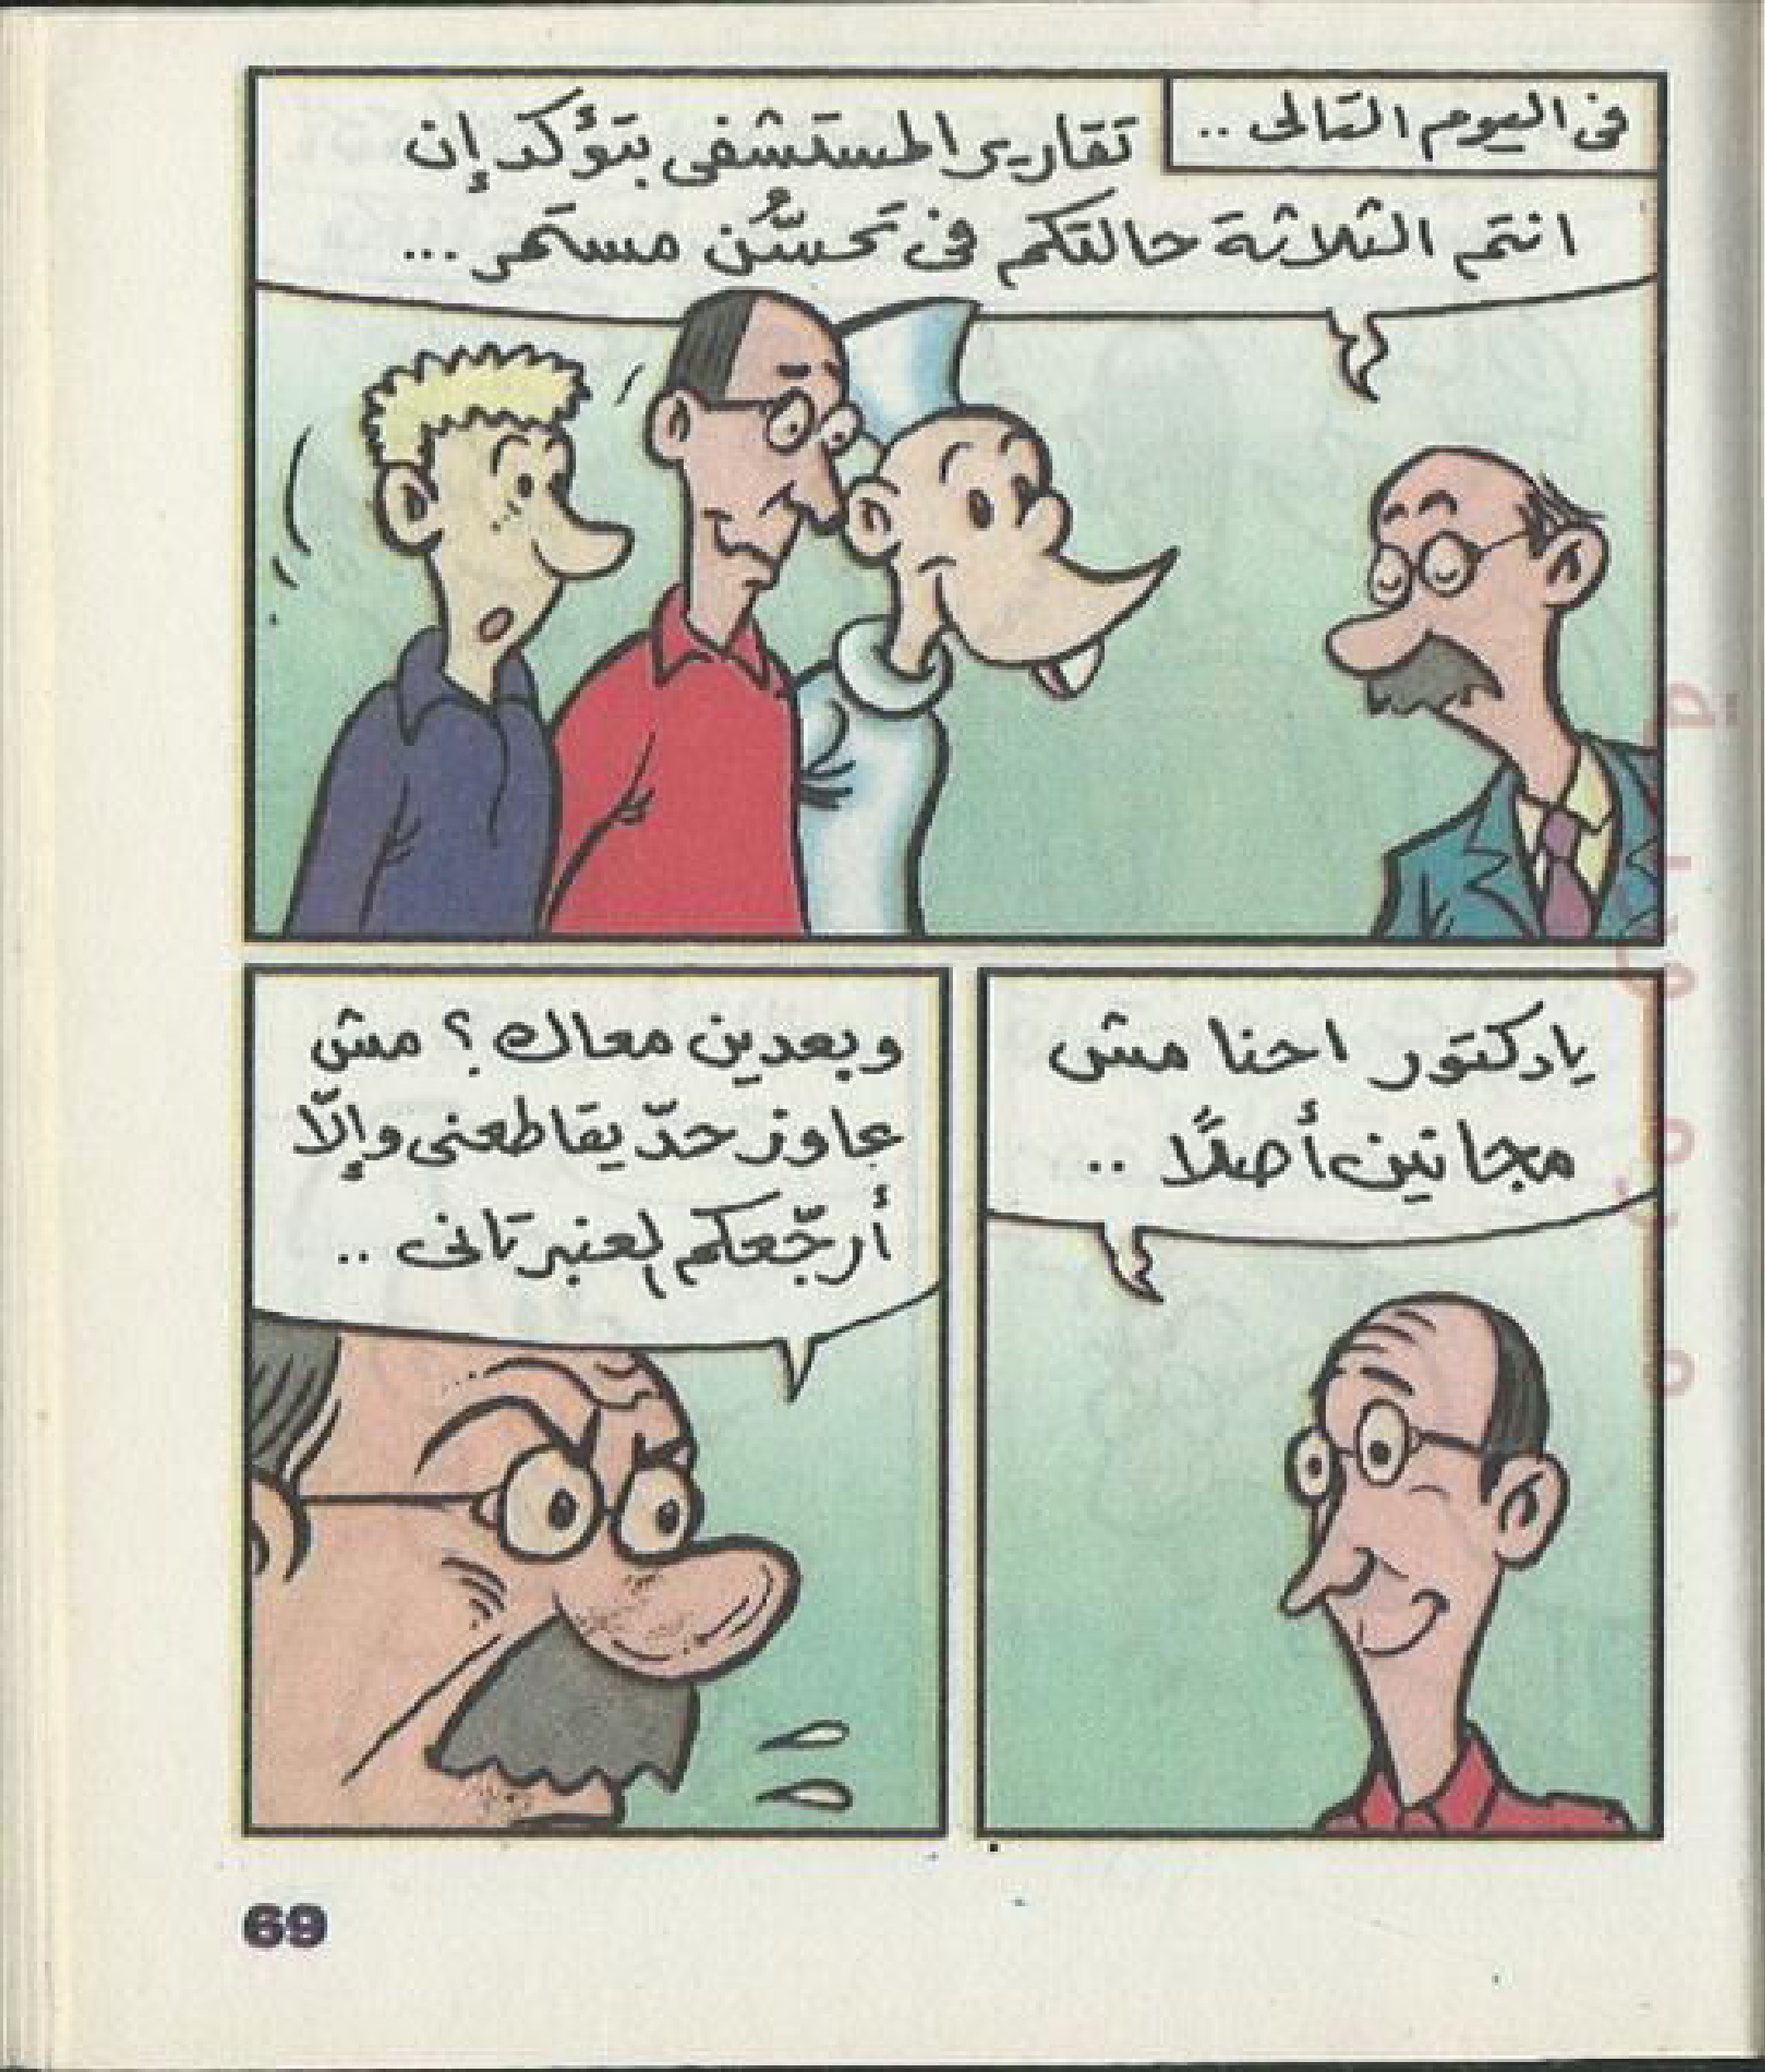 فى اليوم التالى ..
تقارير المستشفى بتؤكد إن
انتم الثلاثة حالتكم فى تحسُّن مستمر ...
يا دكتور احنا مش
مجانين أصلاً ..
وبعدين معاك ؟ مش
عاوز حدّ يقاطعنى وإلّا
أرجّعكم لعنبر تانى ..
69